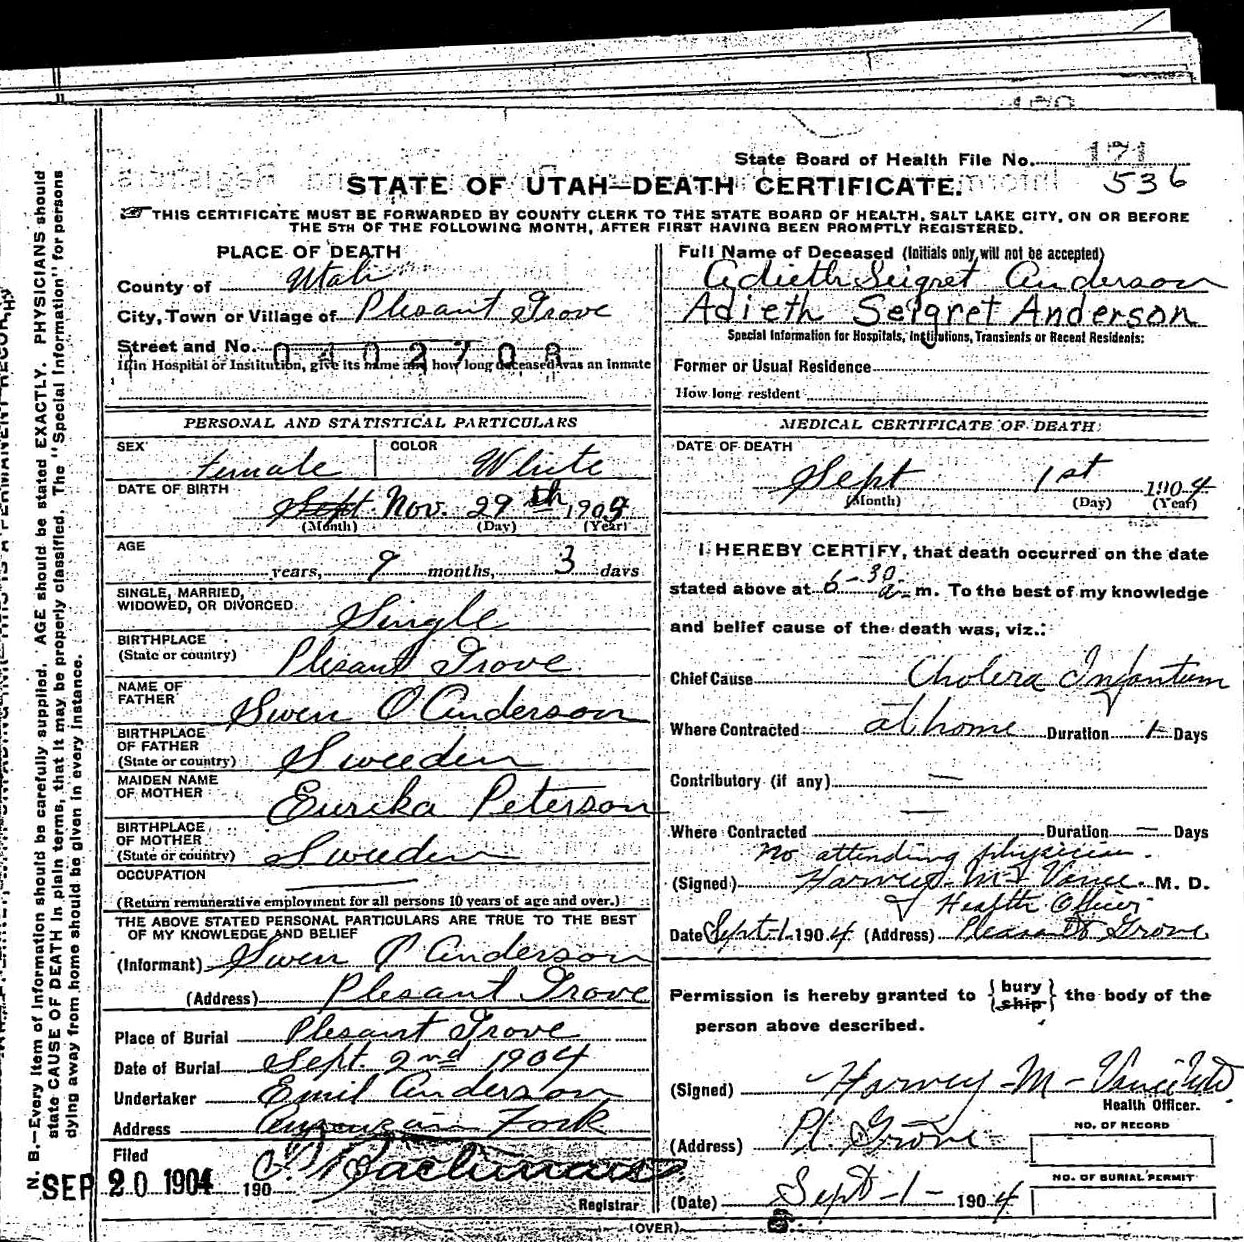 State Board of Health File No. 171
536
STATE OF UTAH—DEATH CERTIFICATE.
THIS CERTIFICATE MUST BE FORWARDED BY COUNTY CLERK TO THE STATE BOARD OF HEALTH, SALT LAKE CITY, ON OR BEFORE
THE 5TH OF THE FOLLOWING MONTH, AFTER FIRST HAVING BEEN PROMPTLY REGISTERED.
PLACE OF DEATH
County of Utah
City, Town or Village of Plesant Grove
Street and No.
0402708
If in Hospital or Institution, give its name and how long deceased was an inmate
Full Name of Deceased (Initials only will not be accepted)
Adieth Seigret Anderson
Adieth Seigret Anderson
Special Information for Hospitals, Institutions, Transients or Recent Residents:
Former or Usual Residence
How long resident
PERSONAL AND STATISTICAL PARTICULARS
SEX female COLOR White
DATE OF BIRTH
Sept Nov. 29th 190
(Month) (Day) (Year)
AGE
years, 9 months, 3 days
SINGLE, MARRIED,
WIDOWED, OR DIVORCED. Single
BIRTHPLACE
(State or country) Plesant Grove
NAME OF
FATHER Swen O Anderson
BIRTHPLACE
OF FATHER
(State or country) Sweeden
MAIDEN NAME
OF MOTHER Eurika Peterson
BIRTHPLACE
OF MOTHER
(State or country) Sweeden
OCCUPATION
(Return remunerative employment for all persons 10 years of age and over.)
THE ABOVE STATED PERSONAL PARTICULARS ARE TRUE TO THE BEST
OF MY KNOWLEDGE AND BELIEF
(Informant) Swen O Anderson
(Address) Plesant Grove
Place of Burial Plesant Grove
Date of Burial Sept. 2nd 1904
Undertaker Emil Anderson
Address American Fork
Filed
SEP 20 1904 190
Registrar
MEDICAL CERTIFICATE OF DEATH
DATE OF DEATH
Sept 1st 1904
(Month) (Day) (Year)
I HEREBY CERTIFY, that death occurred on the date
stated above at 6-30 a.m. To the best of my knowledge
and belief cause of the death was, viz.:
Chief Cause Cholera Infantum
Where Contracted at home Duration Days
Contributory (if any) —
—
Where Contracted Duration — Days
no attending physician.
(Signed) Harvey M Vance. M. D.
Health Officer
Date Sept-1-1904 (Address) Pleasant Grove
Permission is hereby granted to { bury ship } the body of the
person above described.
(Signed) Harvey-M-Vance MD
Health Officer.
(Address) Pl. Grove
(Date) Sept-1-1904
NO. OF RECORD
NO. OF BURIAL PERMIT
(OVER)
N. B.—Every item of information should be carefully supplied. AGE should be stated EXACTLY. PHYSICIANS should
state CAUSE OF DEATH in plain terms, that it may be properly classified. The "Special Information" for persons
dying away from home should be given in every instance.